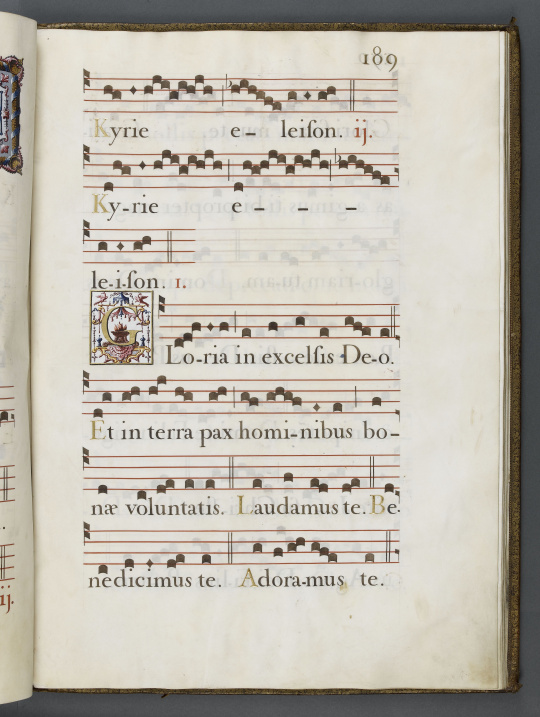 189
Kyrie e- leiſon. ij.
Ky-rie e - - -
le-i-ſon. 1.
GLo-ria in excelſis De-o.
Et in terra pax homi-nibus bo-
næ voluntatis. Laudamus te. Be
nedicimus te. Adora-mus te.
ij.